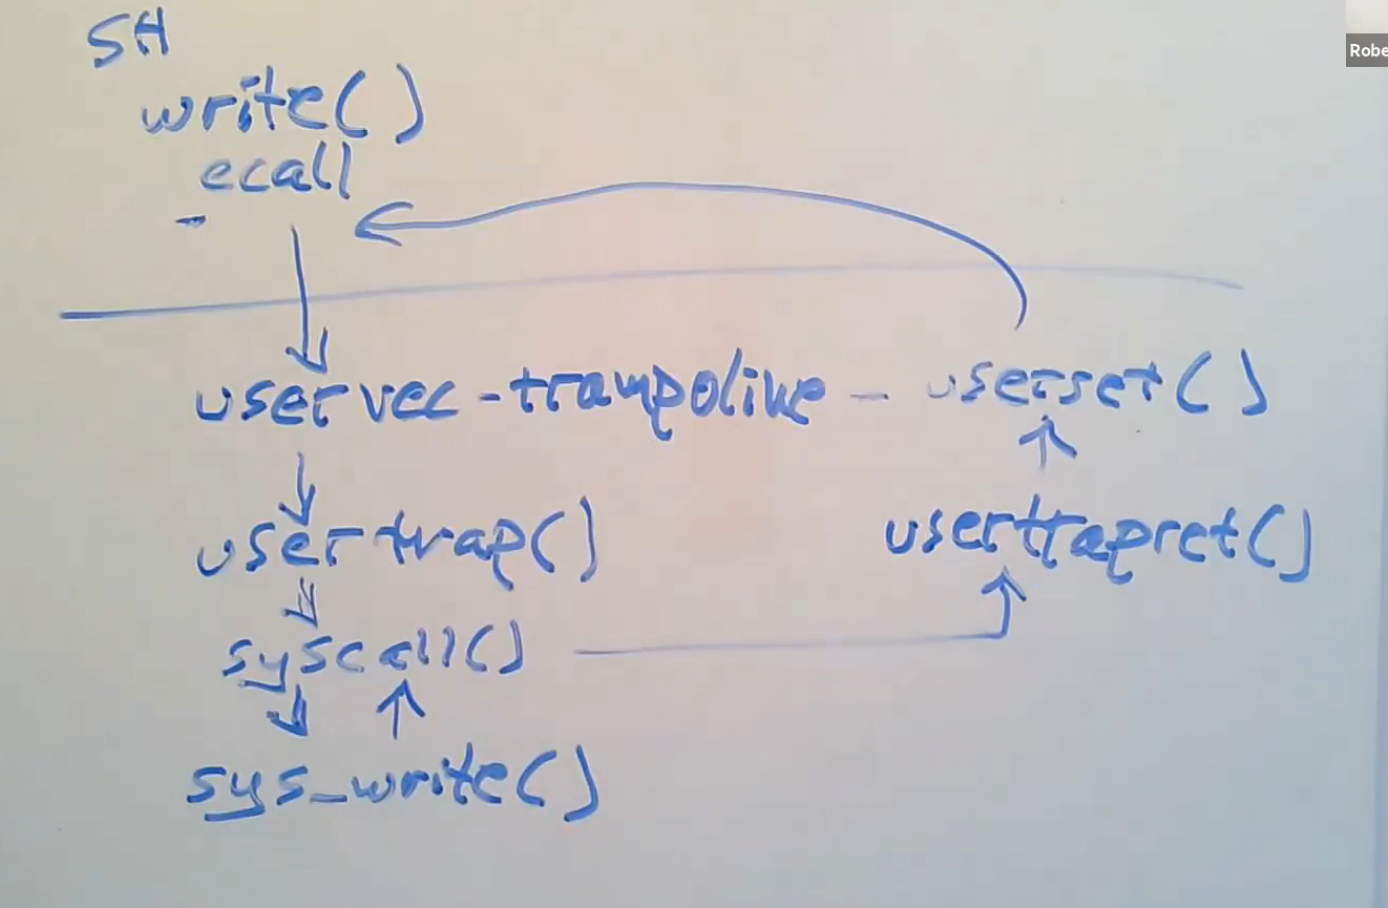 SH
write()
ecall
uservec - trampoline - userret()
usertrap()
usertrapret()
syscall()
sys_write()
Robe